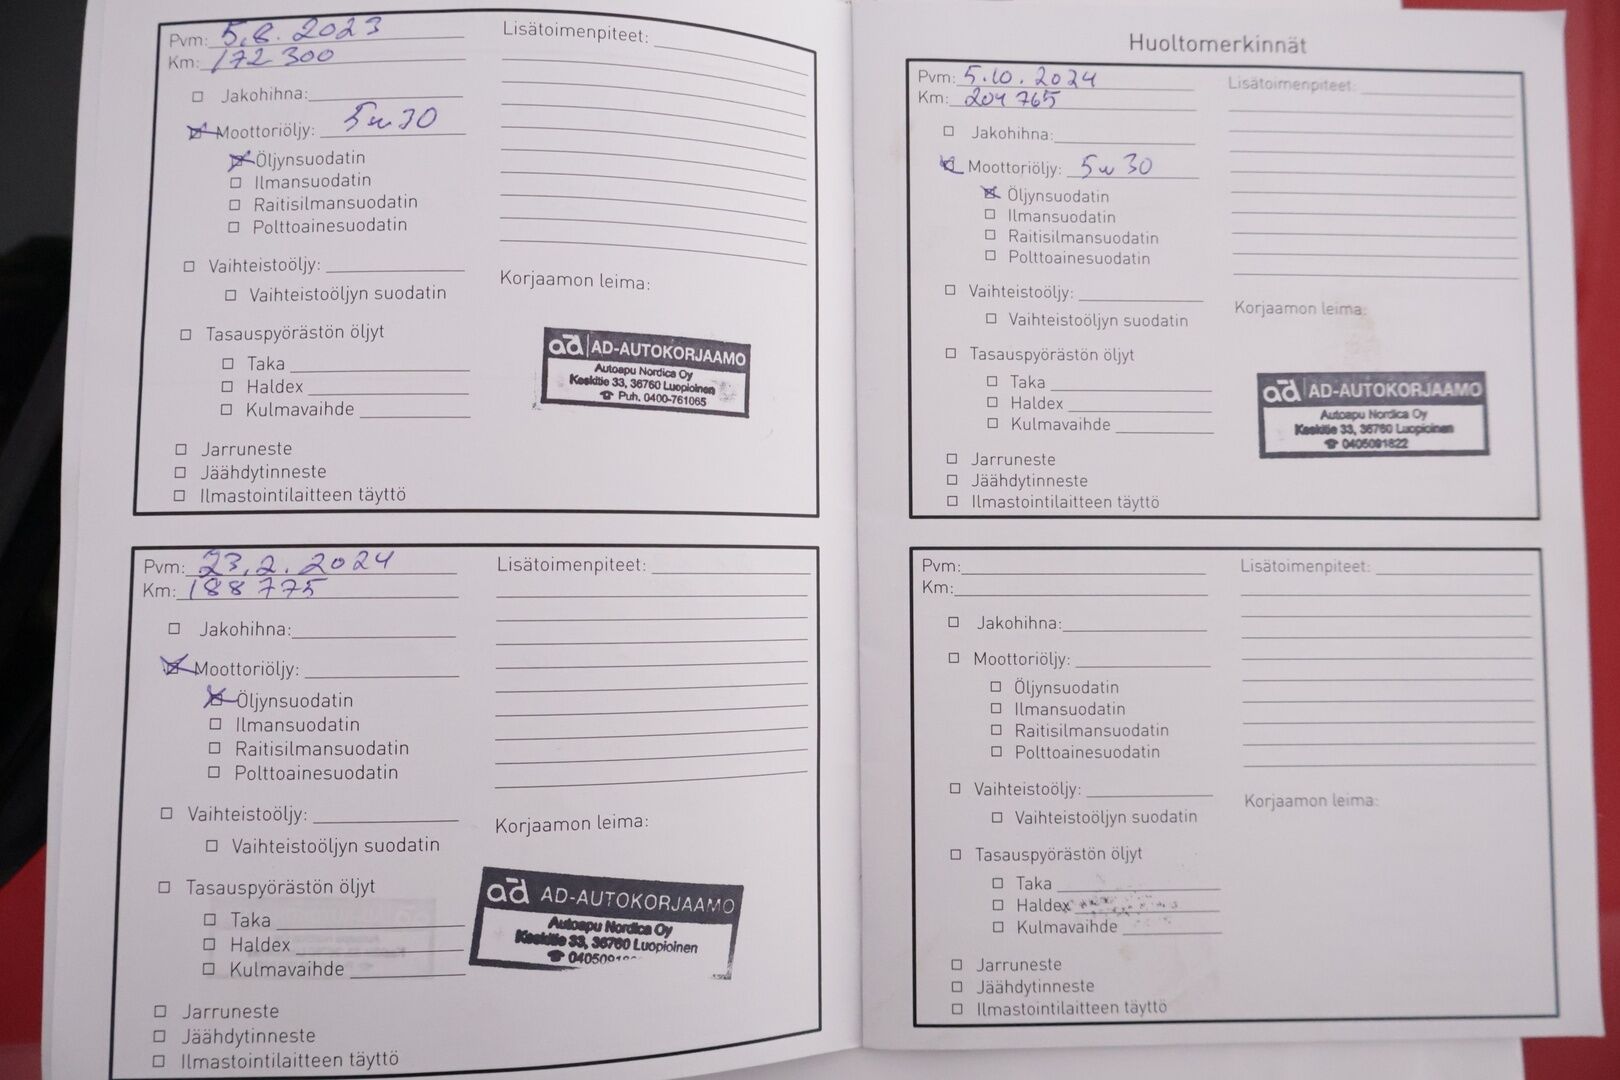 Pvm: 5.8.2023
Km: 172 300
Jakohihna:
Moottoriöljy: 5w30
Öljynsuodatin
Ilmansuodatin
Raitisilmansuodatin
Polttoainesuodatin
Vaihteistoöljy:
Vaihteistoöljyn suodatin
Tasauspyörästön öljyt
Taka
Haldex
Kulmavaihde
Jarruneste
Jäähdytinneste
Ilmastointilaitteen täyttö
Lisätoimenpiteet:
Korjaamon leima:
ad AD-AUTOKORJAAMO
Autoapu Nordica Oy
Keskitie 33, 36760 Luopioinen
☎ Puh. 0400-761065
Pvm: 23.2.2024
Km: 188 775
Jakohihna:
Moottoriöljy:
Öljynsuodatin
Ilmansuodatin
Raitisilmansuodatin
Polttoainesuodatin
Vaihteistoöljy:
Vaihteistoöljyn suodatin
Tasauspyörästön öljyt
Taka
Haldex
Kulmavaihde
Jarruneste
Jäähdytinneste
Ilmastointilaitteen täyttö
Lisätoimenpiteet:
Korjaamon leima:
ad AD-AUTOKORJAAMO
Autoapu Nordica Oy
Keskitie 33, 36760 Luopioinen
Huoltomerkinnät
Pvm: 5.10.2024
Km: 204 765
Jakohihna:
Moottoriöljy: 5w30
Öljynsuodatin
Ilmansuodatin
Raitisilmansuodatin
Polttoainesuodatin
Vaihteistoöljy:
Vaihteistoöljyn suodatin
Tasauspyörästön öljyt
Taka
Haldex
Kulmavaihde
Jarruneste
Jäähdytinneste
Ilmastointilaitteen täyttö
Lisätoimenpiteet:
Korjaamon leima:
ad AD-AUTOKORJAAMO
Autoapu Nordica Oy
Keskitie 33, 36760 Luopioinen
☎ 0405091822
Pvm:
Km:
Jakohihna:
Moottoriöljy:
Öljynsuodatin
Ilmansuodatin
Raitisilmansuodatin
Polttoainesuodatin
Vaihteistoöljy:
Vaihteistoöljyn suodatin
Tasauspyörästön öljyt
Taka
Haldex
Kulmavaihde
Jarruneste
Jäähdytinneste
Ilmastointilaitteen täyttö
Lisätoimenpiteet:
Korjaamon leima: